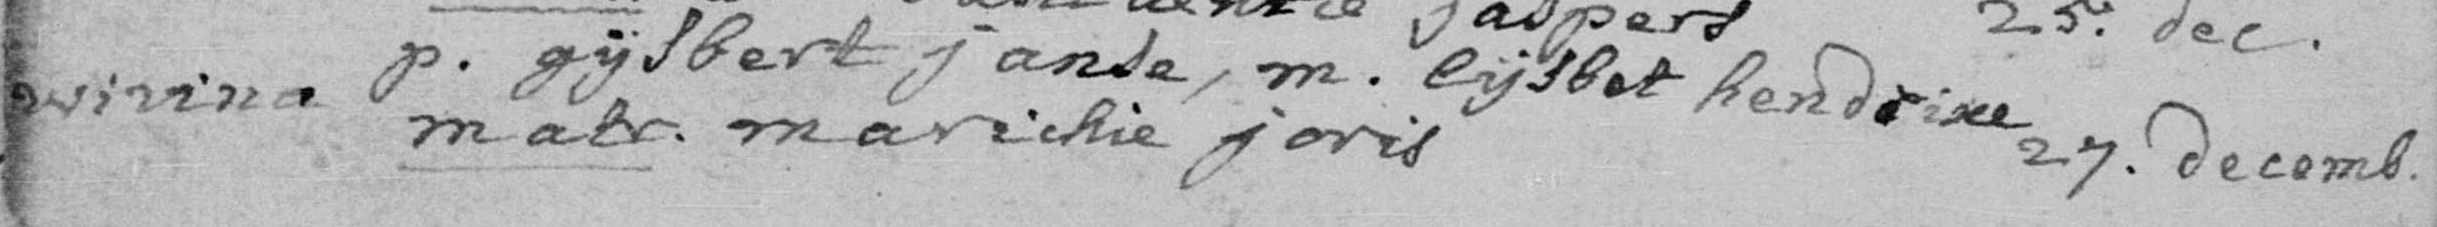 jaspers 25. dec.
p. gijsbert janse, m. lijsbet hendrixe
wirina matr. marichie joris 27. decemb.